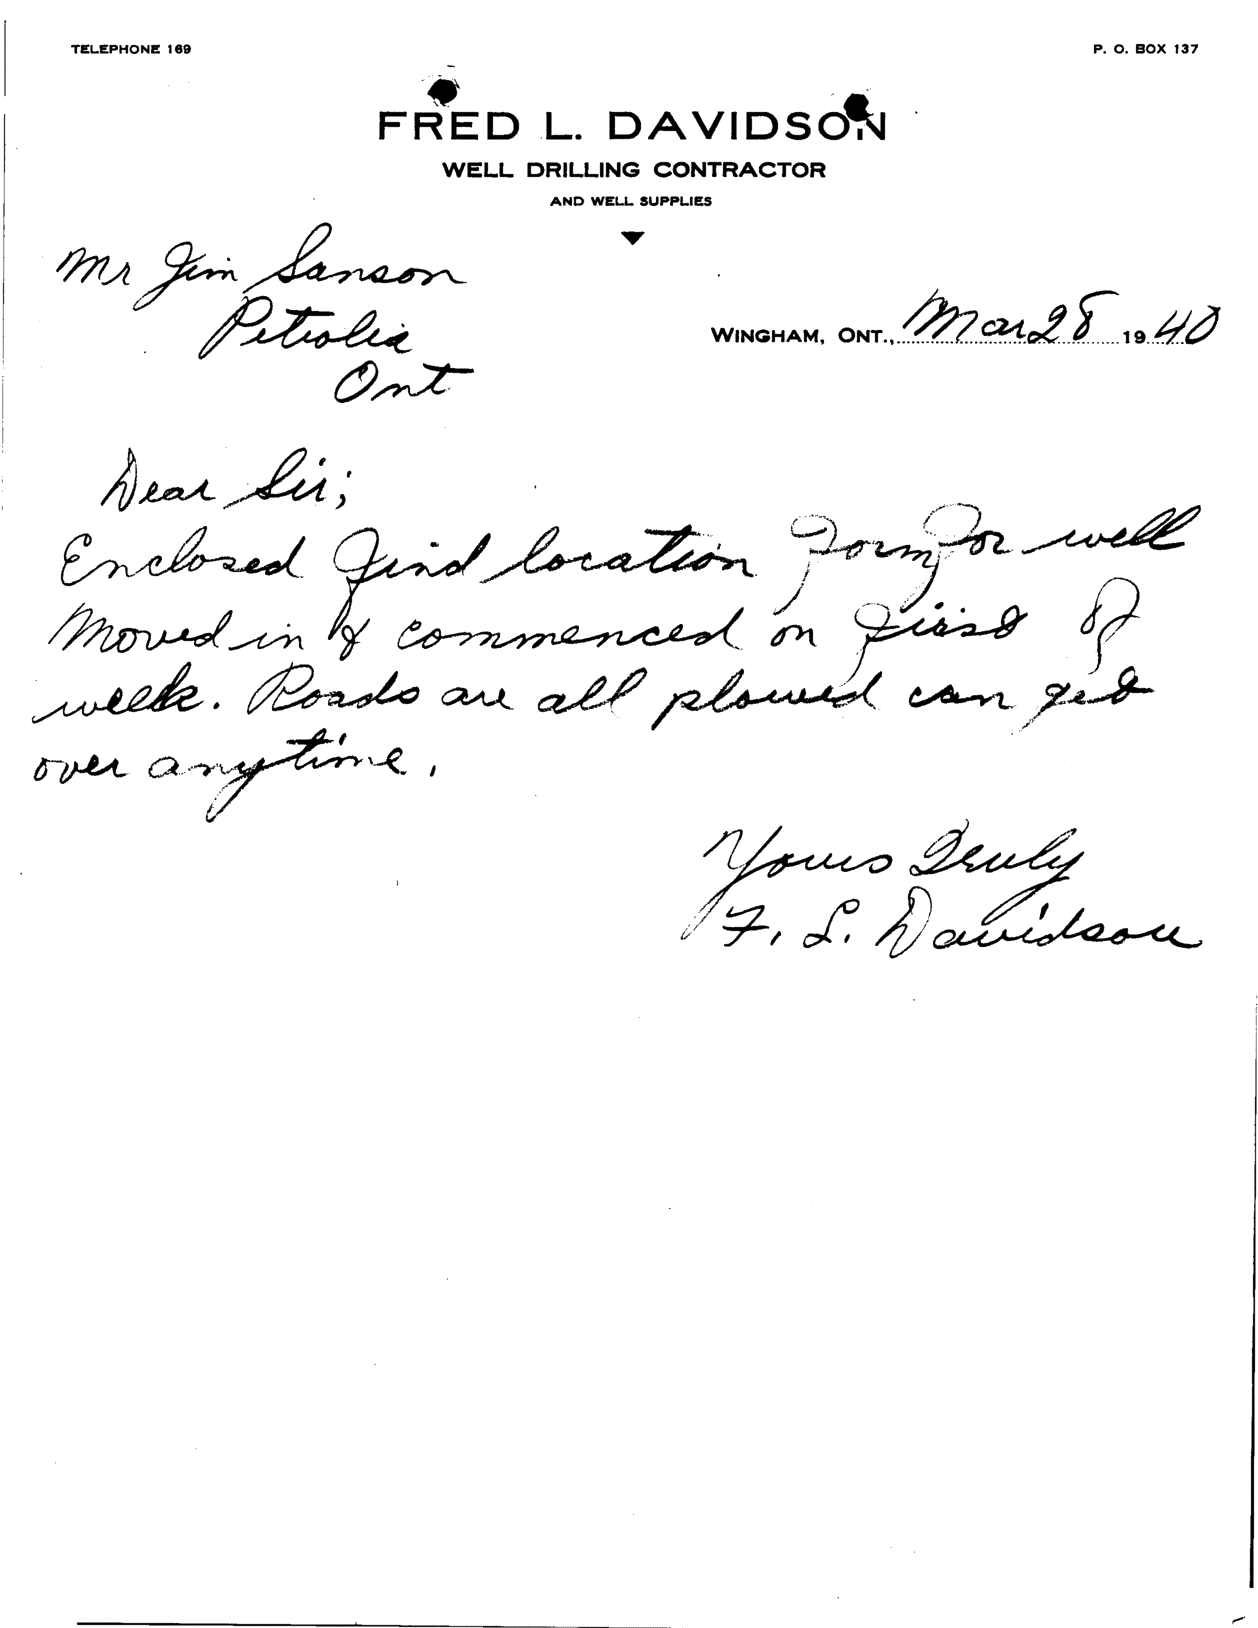 TELEPHONE 169
P. O. BOX 137
FRED L. DAVIDSON
WELL DRILLING CONTRACTOR
AND WELL SUPPLIES
Mr Jim Sanson
Petrolia
Ont
WINGHAM, ONT., Mar 28 1940
Dear Sir;
Enclosed find location form for well
Moved in & commenced on first of
week. Roads are all plowed can get
over anytime.
Yours Truly
F. L. Davidson